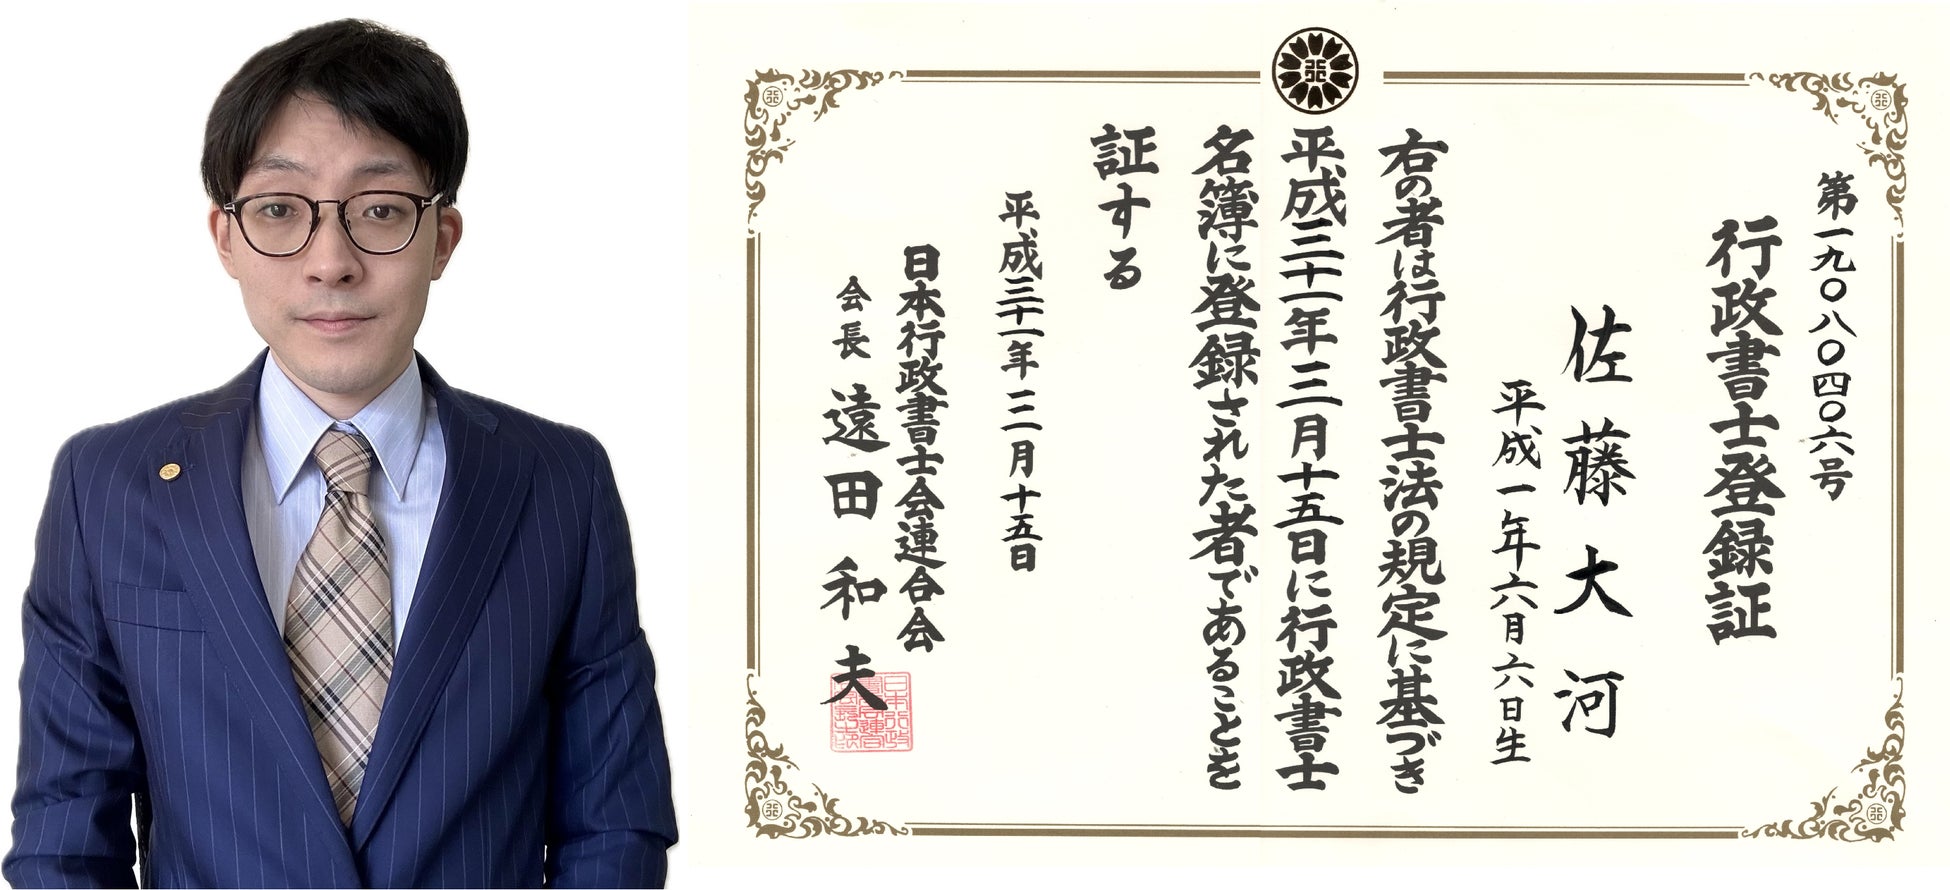 第一九〇八〇四〇六号
行政書士登録証
佐藤大河
平成一年六月六日生
右の者は行政書士法の規定に基づき
平成三十一年三月十五日に行政書士
名簿に登録された者であることを
証する
平成三十一年三月十五日
日本行政書士会連合会
会長 遠田和夫